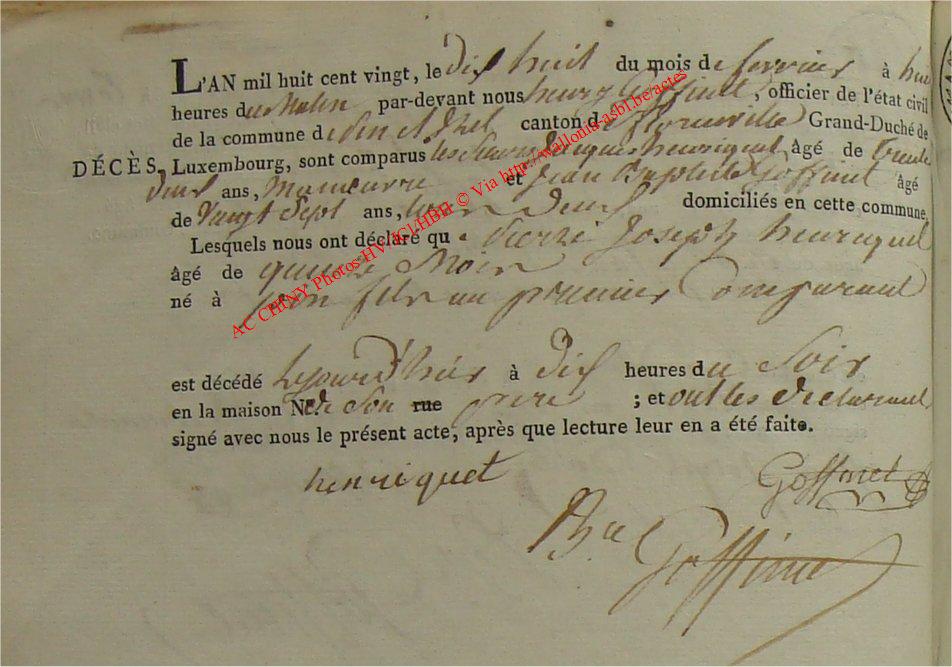 L'AN mil huit cent vingt, le dix huit du mois de fevrier à huit
heures du Matin par-devant nous henry Goffinet, officier de l'état civil
de la commune d'Izel canton de florenville Grand-Duché de
DÉCÈS, Luxembourg, sont comparus les sieurs Jacques henriquet âgé de trente
deux ans, Maneuvre et Jean Baptiste Goffinet âgé
de Vingt Sept ans, tous deux domiciliés en cette commune,
Lesquels nous ont déclaré que Pierre Joseph henriquet
âgé de quinze Mois
né à fils au premier Comparant
est décédé le jour d'hier à dix heures du Soir
en la maison N° de Son rue pere ; et ont les declarant
signé avec nous le présent acte, après que lecture leur en a été faite.
henriquet Goffinet
Goffinet
AC CHINY Photos HV-ACI/HBH © Via http://wallonia-asbl.be/actes